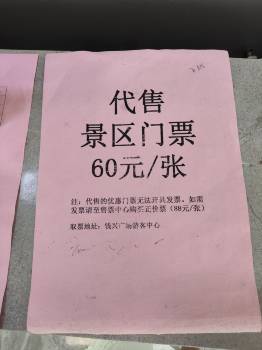 代售
景区门票
60元/张
注：代售的优惠门票无法开具发票。如需
发票请至售票中心购买正价票（88元/张）
取票地址：钱兴广场游客中心